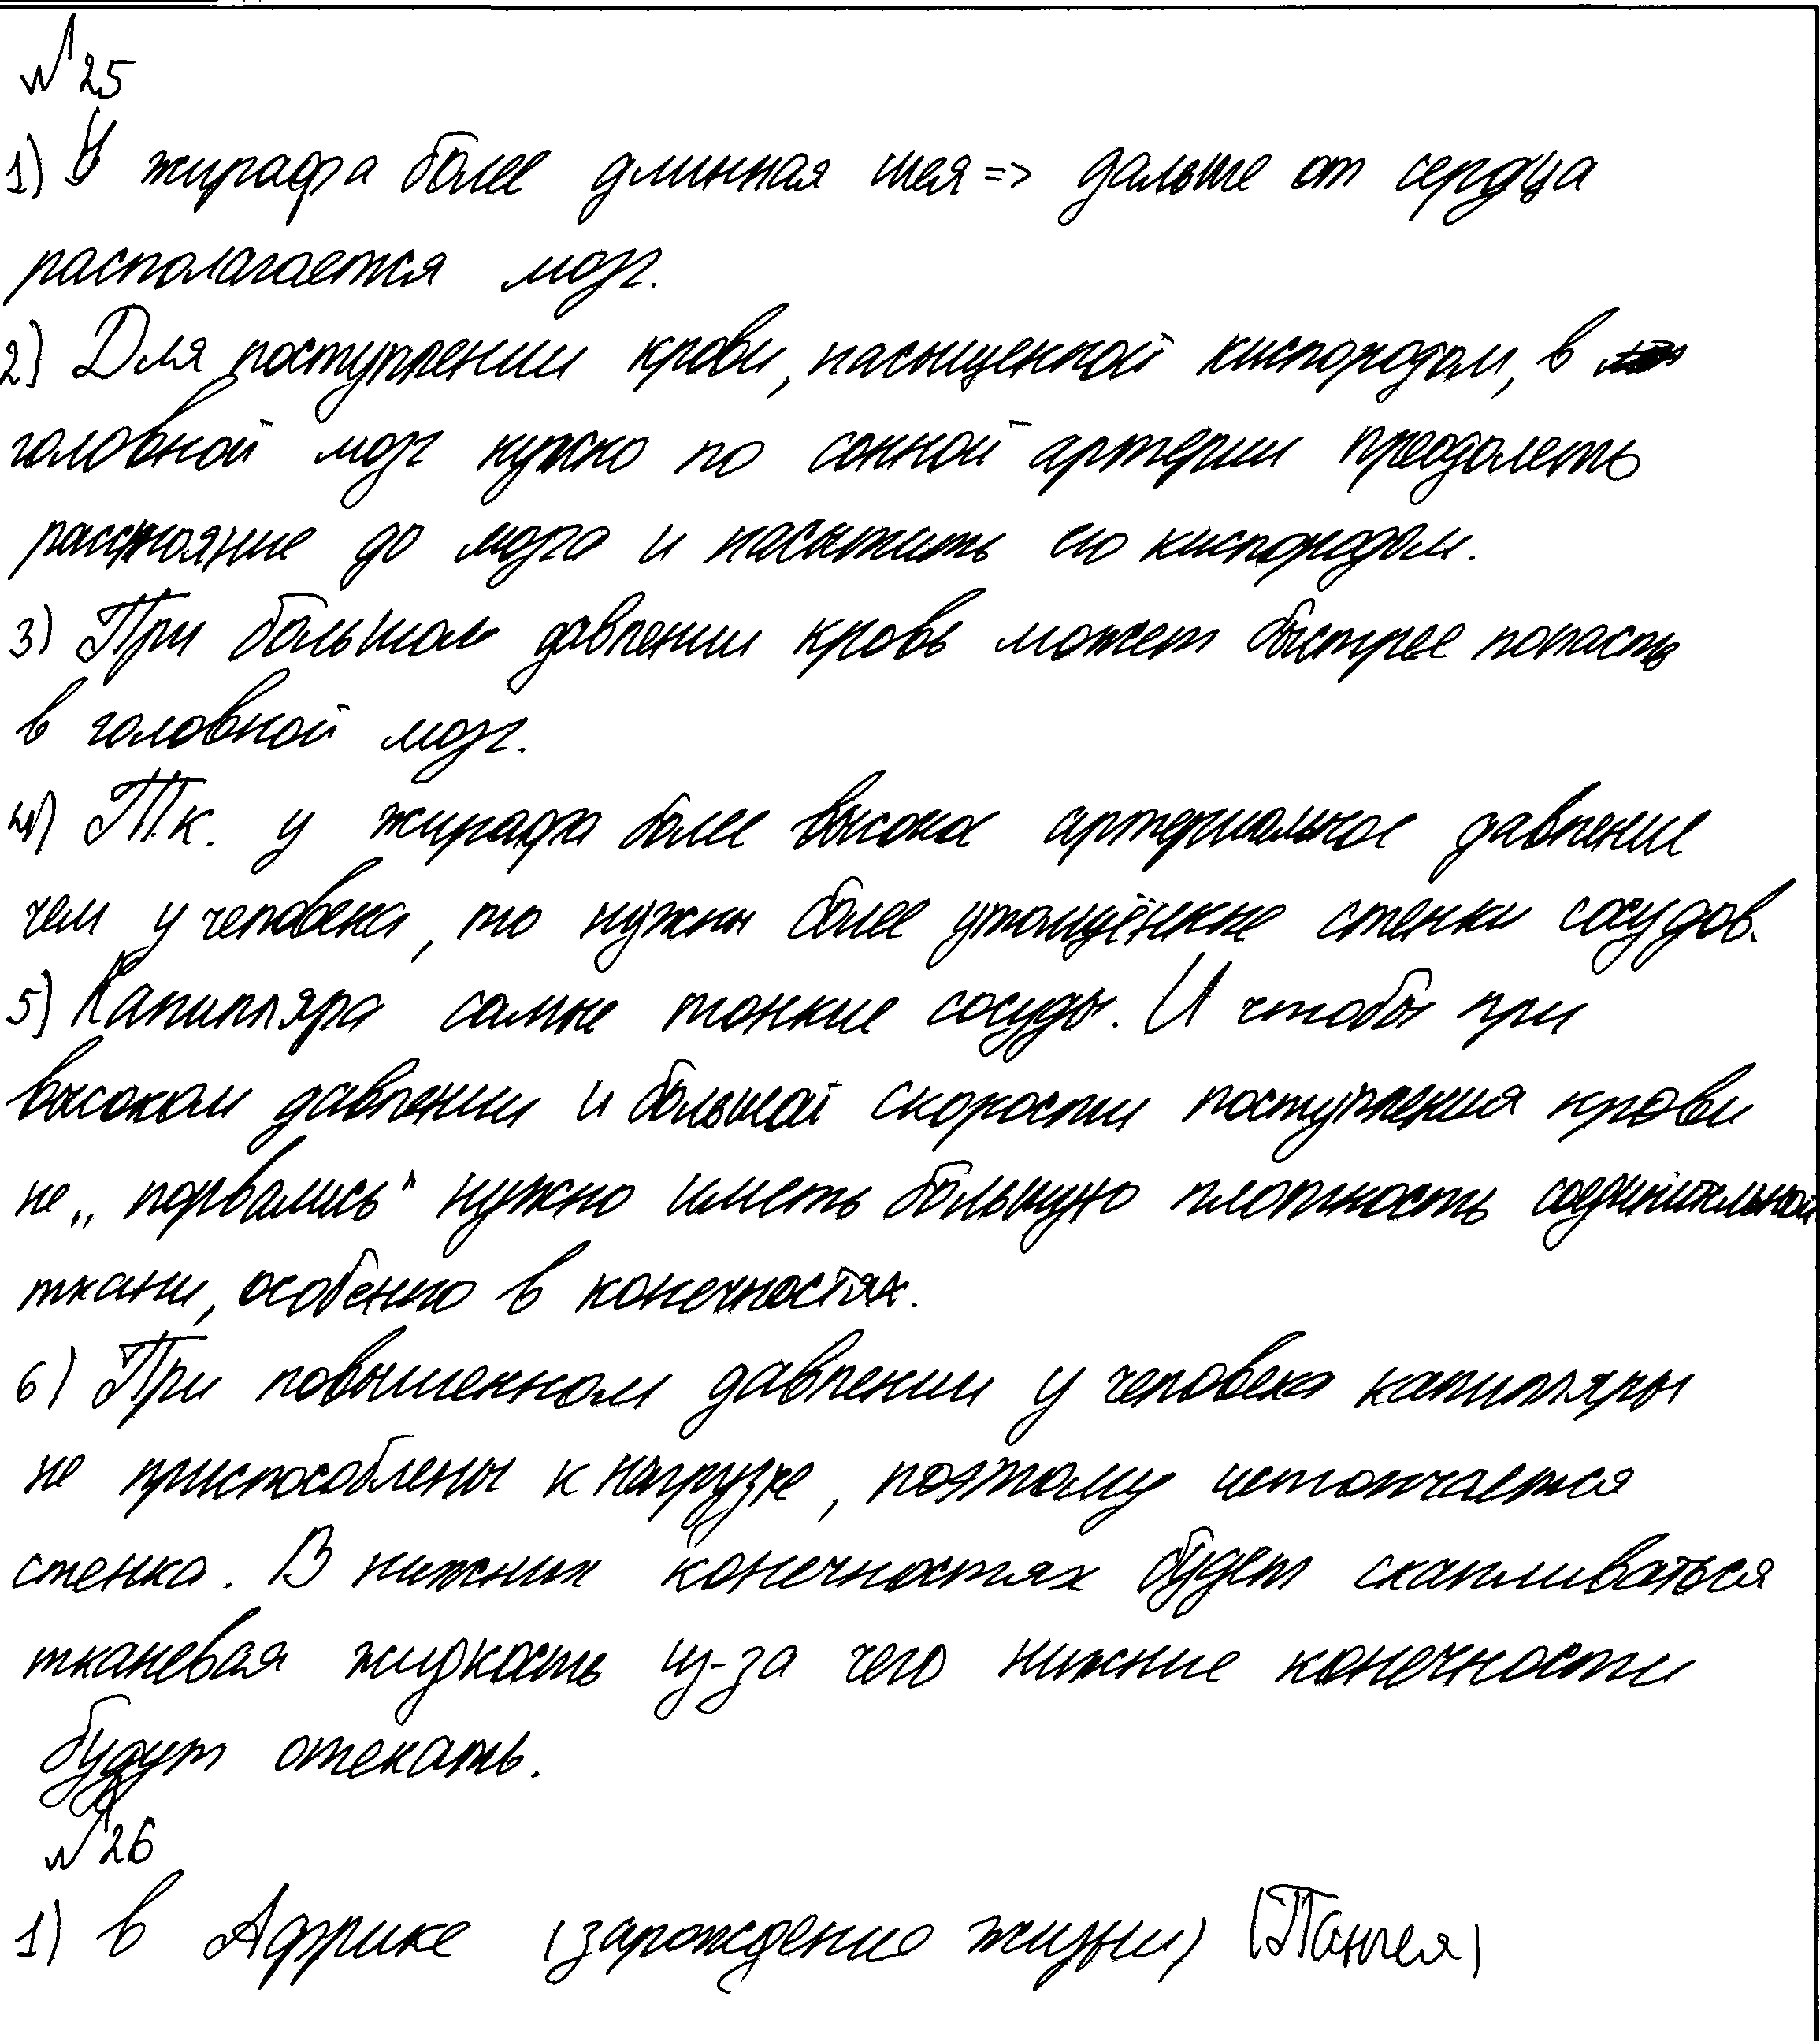 №25
1) У жирафа более длинная шея => дальше от сердца
располагается мозг.
2) Для поступлении крови, насыщенной кислородом, в
головной мозг нужно по сонной артерии преодолеть
расстояние до мозга и насытить его кислородом.
3) При большом давлении кровь может быстрее попасть
в головной мозг.
4) Т.к. у жирафа более высокое артериальное давление
чем у человека, то нужны более утолщённые стенки сосудов.
5) Капилляра самые тонкие сосуды. И чтобы при
высоком давлении и большой скорости поступления крови
не „порвались“ нужно иметь большую плотность
ткани, особенно в конечностях.
6) При повышенном давлении у человека капилляры
не приспособлены к нагрузке, поэтому истончается
стенка. В нижних конечностях будет скапливаться
тканевая жидкость из-за чего нижние конечности
будут отекать.
№26
1) в Африке (зарождение жизни) (Пангея)